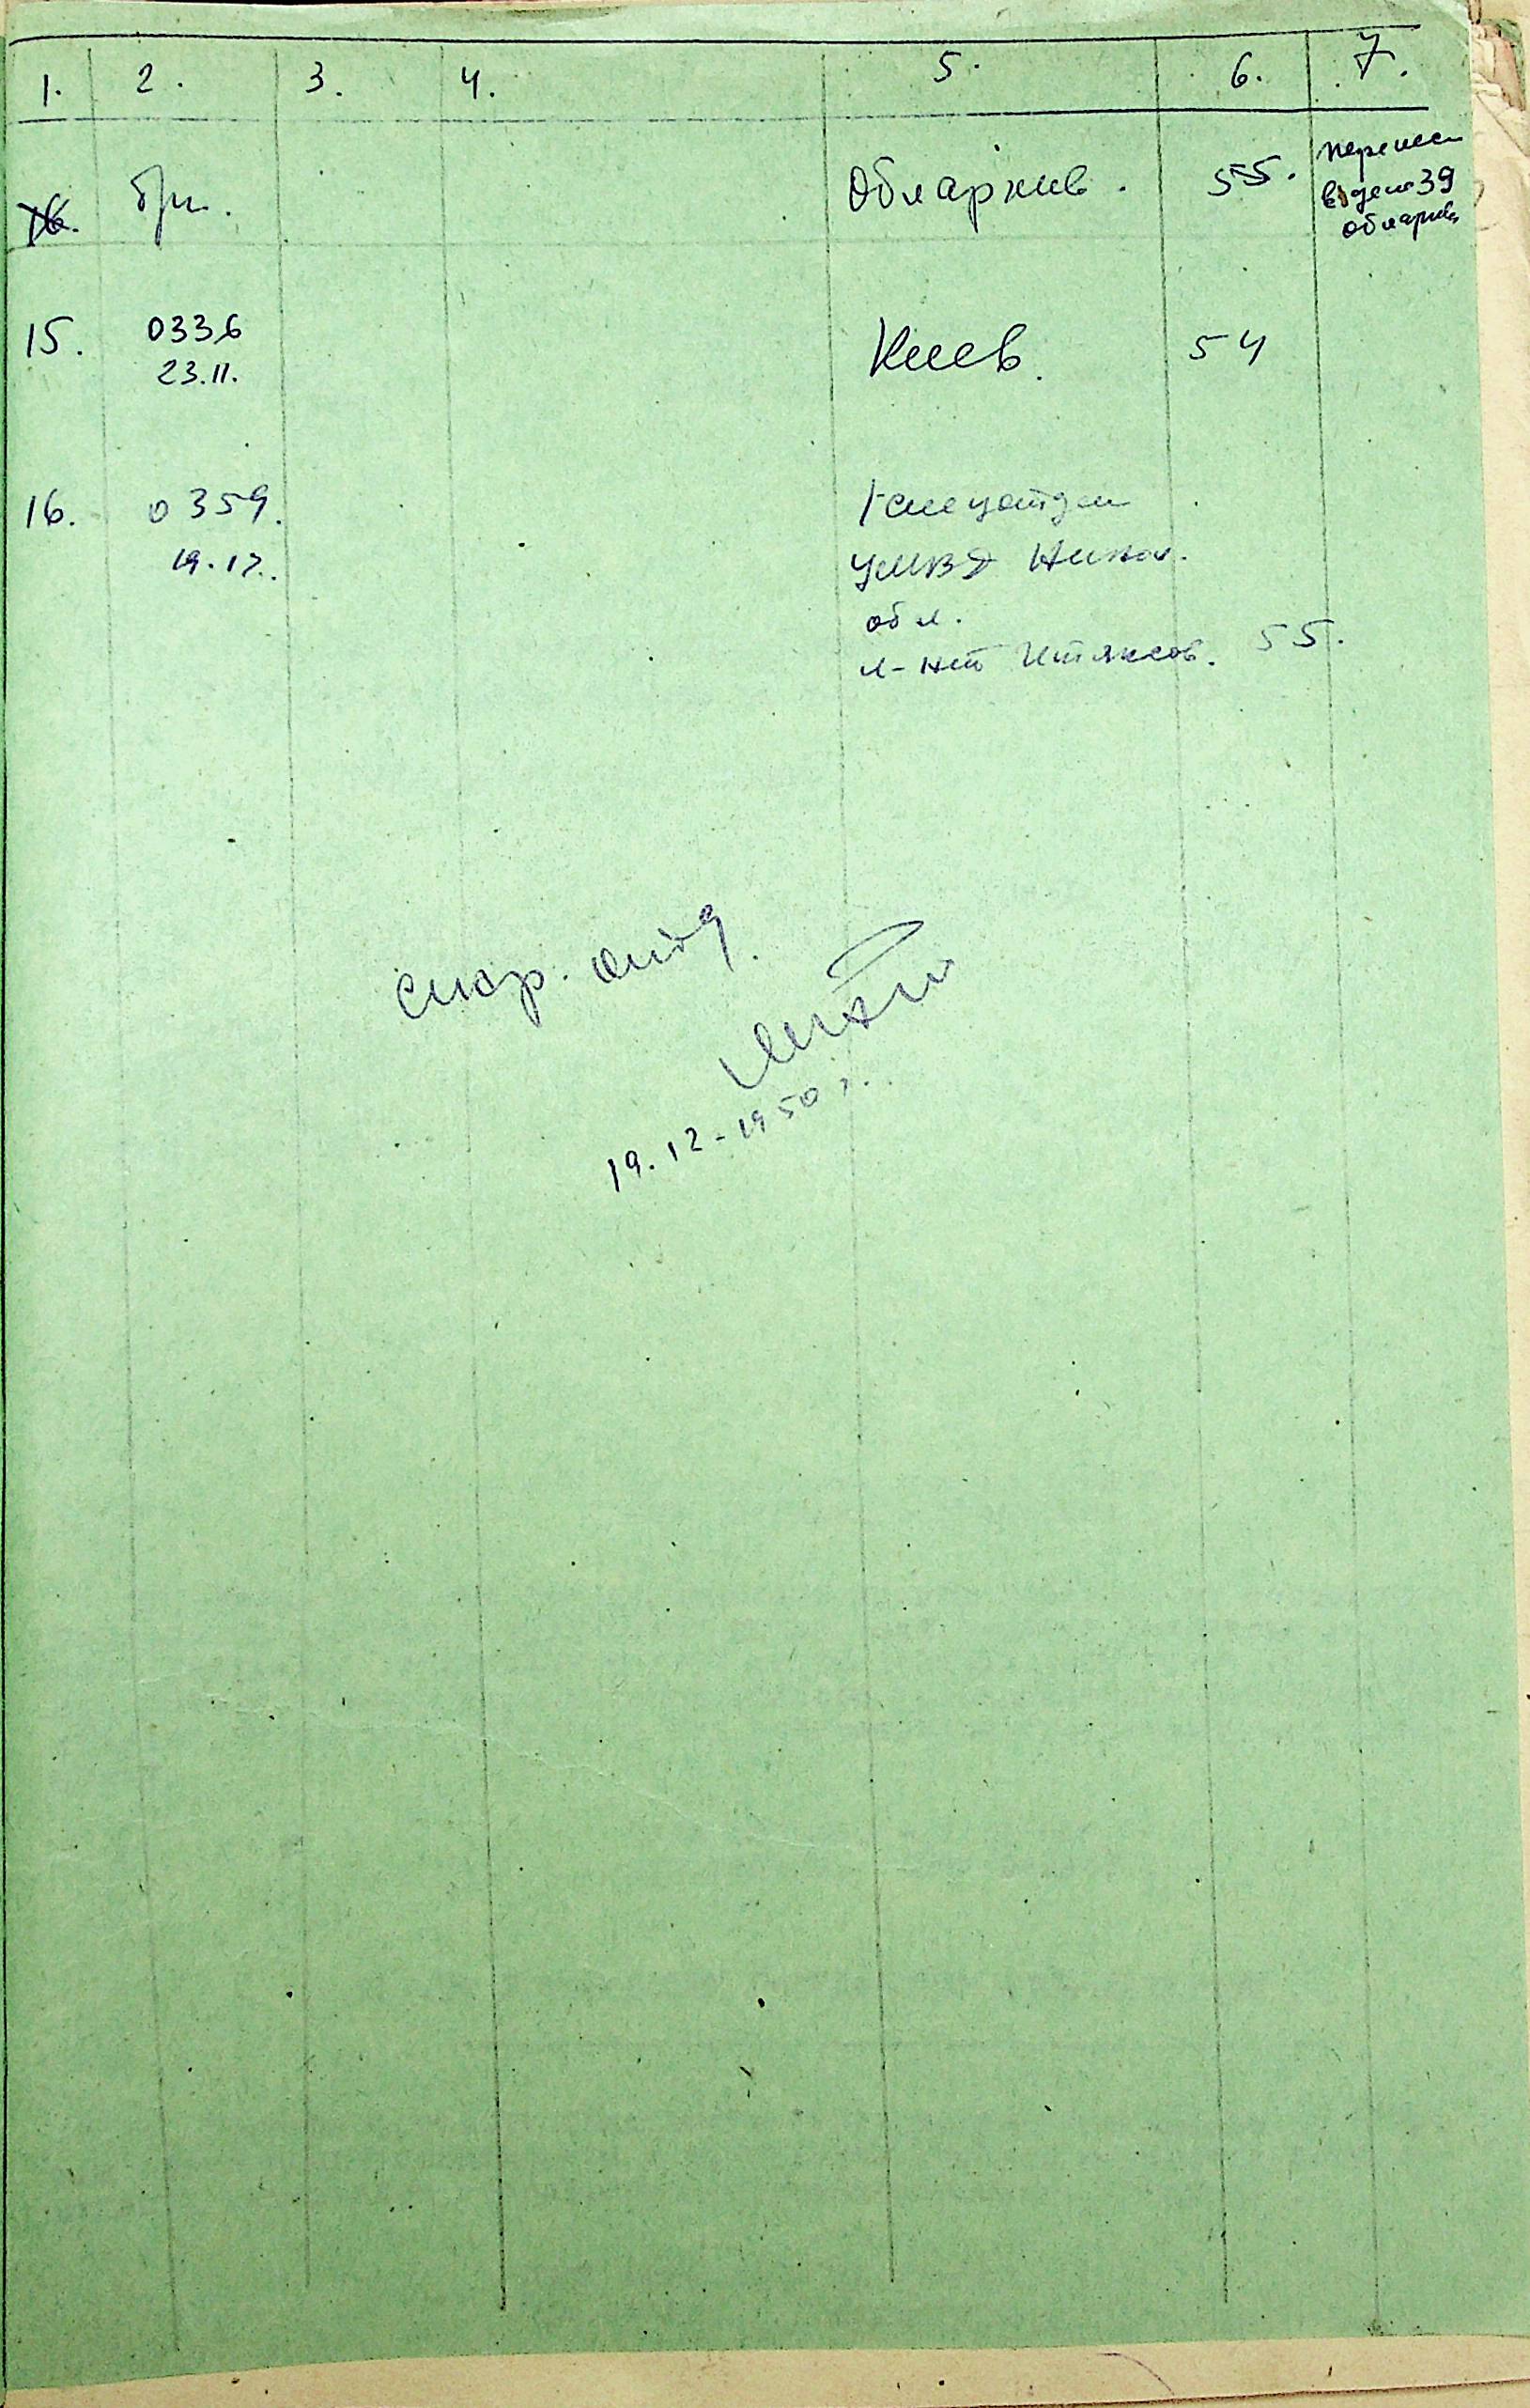 1. 2. 3. 4. 5. 6. 7.
16. б/н. Облархив. 55. перенес
в дело 39
облархива
15. 0336 Киев. 54
23.11.
16. 0359. 1 спецотдел
19.12. УМВД Никол.
обл.
л-нт 55.
19.12-1950 г.